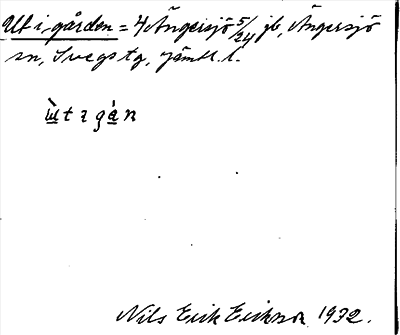 Ut i gården = 4 Ängersjö 5/24 jb, Ängersjö
sn, Svegs tg, Jämtl. l.
ùtigán
Nils Erik Erikson 1932.